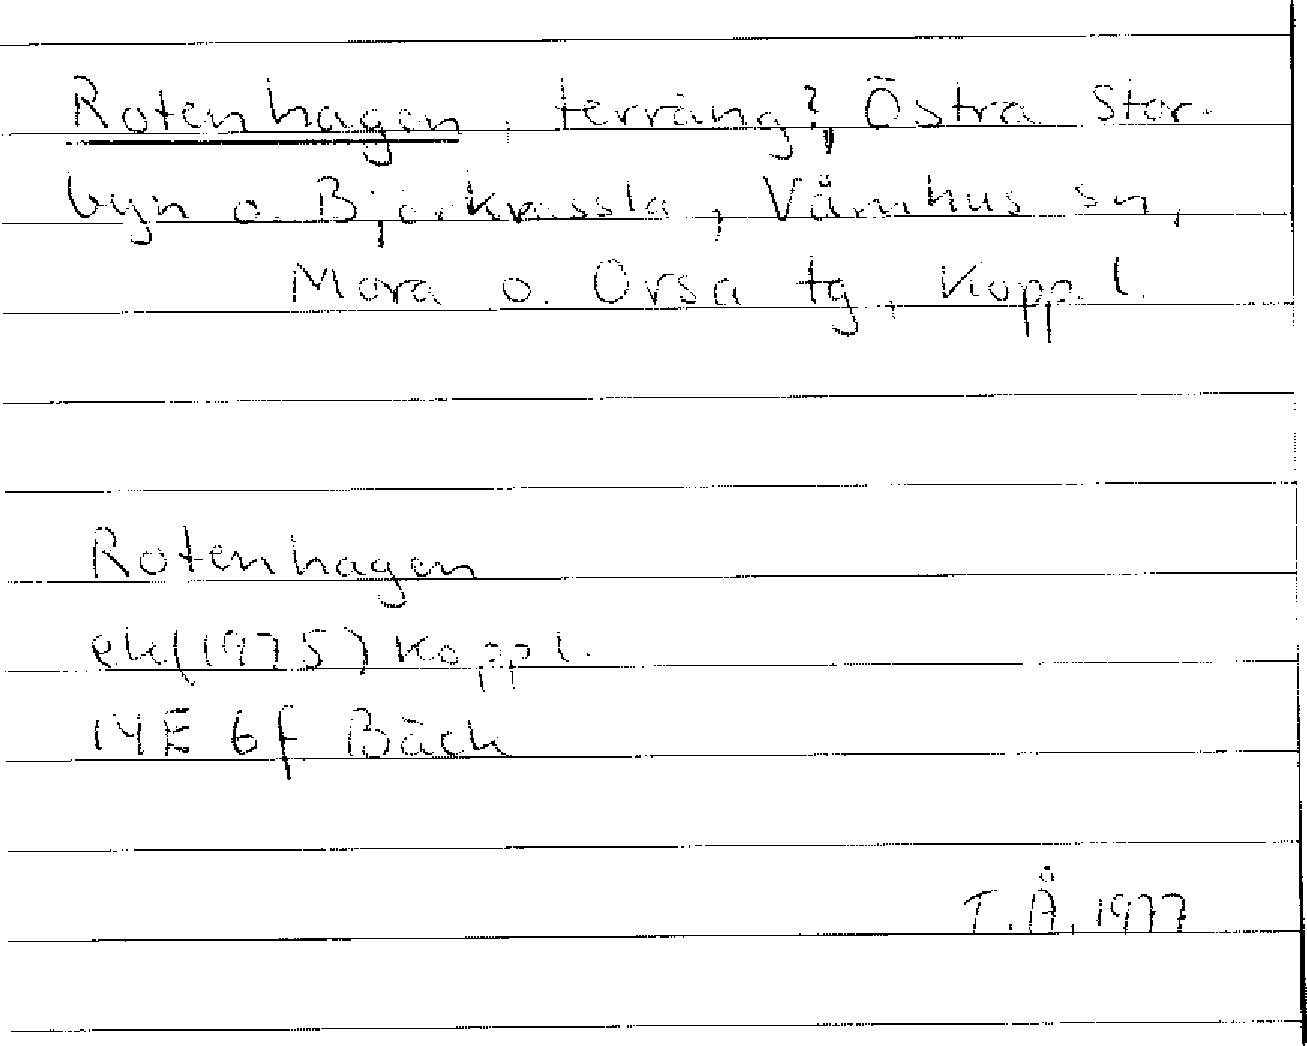 Rotenhagen, terräng?, Östra Stor-
byn o. Björkvassla, Våmhus sn,
Mora o. Orsa tg, Koppl.
Rotenhagen
ek(1975) Koppl.
14E 6f Bäck
T.Å. 1977